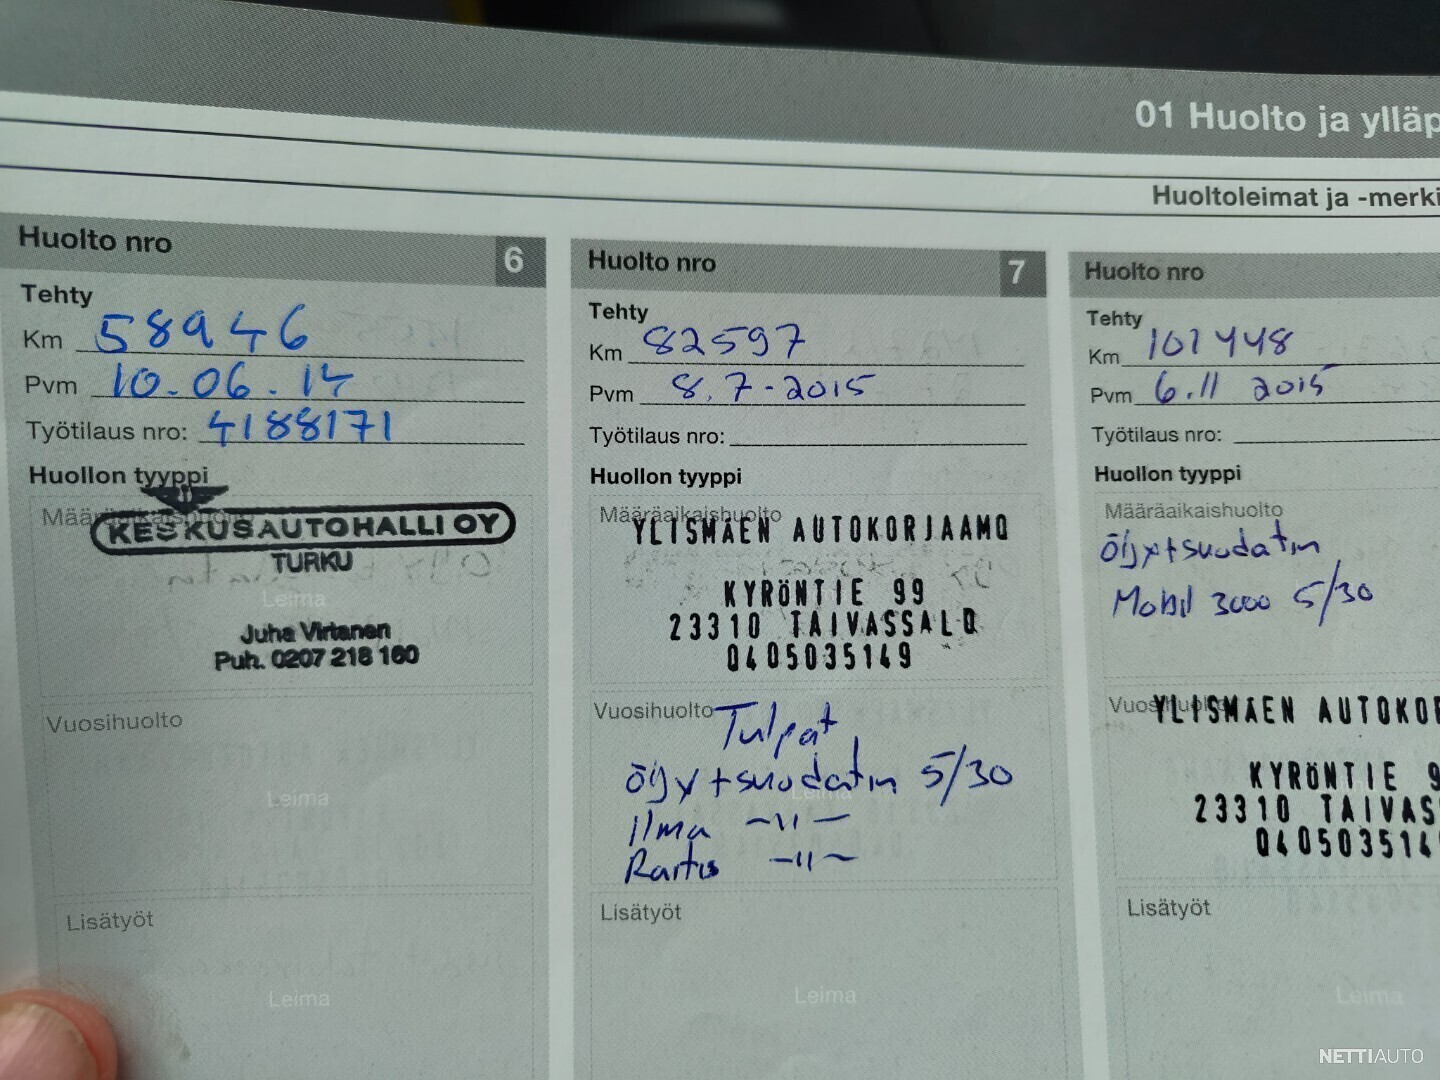 01 Huolto ja ylläp
Huoltoleimat ja -merki
Huolto nro 6
Tehty
Km 58946
Pvm 10.06.14
Työtilaus nro: 4188171
Huollon tyyppi
Määräaikaishuolto
KESKUSAUTOHALLI OY
TURKU
Leima
Juha Virtanen
Puh. 0207 218 160
Vuosihuolto
Leima
Lisätyöt
Leima
Huolto nro 7
Tehty
Km 82597
Pvm 8.7-2015
Työtilaus nro:
Huollon tyyppi
Määräaikaishuolto
YLISMÄEN AUTOKORJAAMO
KYRÖNTIE 99
23310 TAIVASSALO
0405035149
Vuosihuolto
Tulpat
öljy+suodatin 5/30
Leima
Ilma -"-
Raitis -"-
Lisätyöt
Leima
Huolto nro
Tehty
Km 101448
Pvm 6.11 2015
Työtilaus nro:
Huollon tyyppi
Määräaikaishuolto
öljy+suodatin
Mobil 3000 5/30
Vuosihuolto
YLISMÄEN AUTOKOR
KYRÖNTIE 9
23310 TAIVAS
040503514
Lisätyöt
Leima
NETTIAUTO